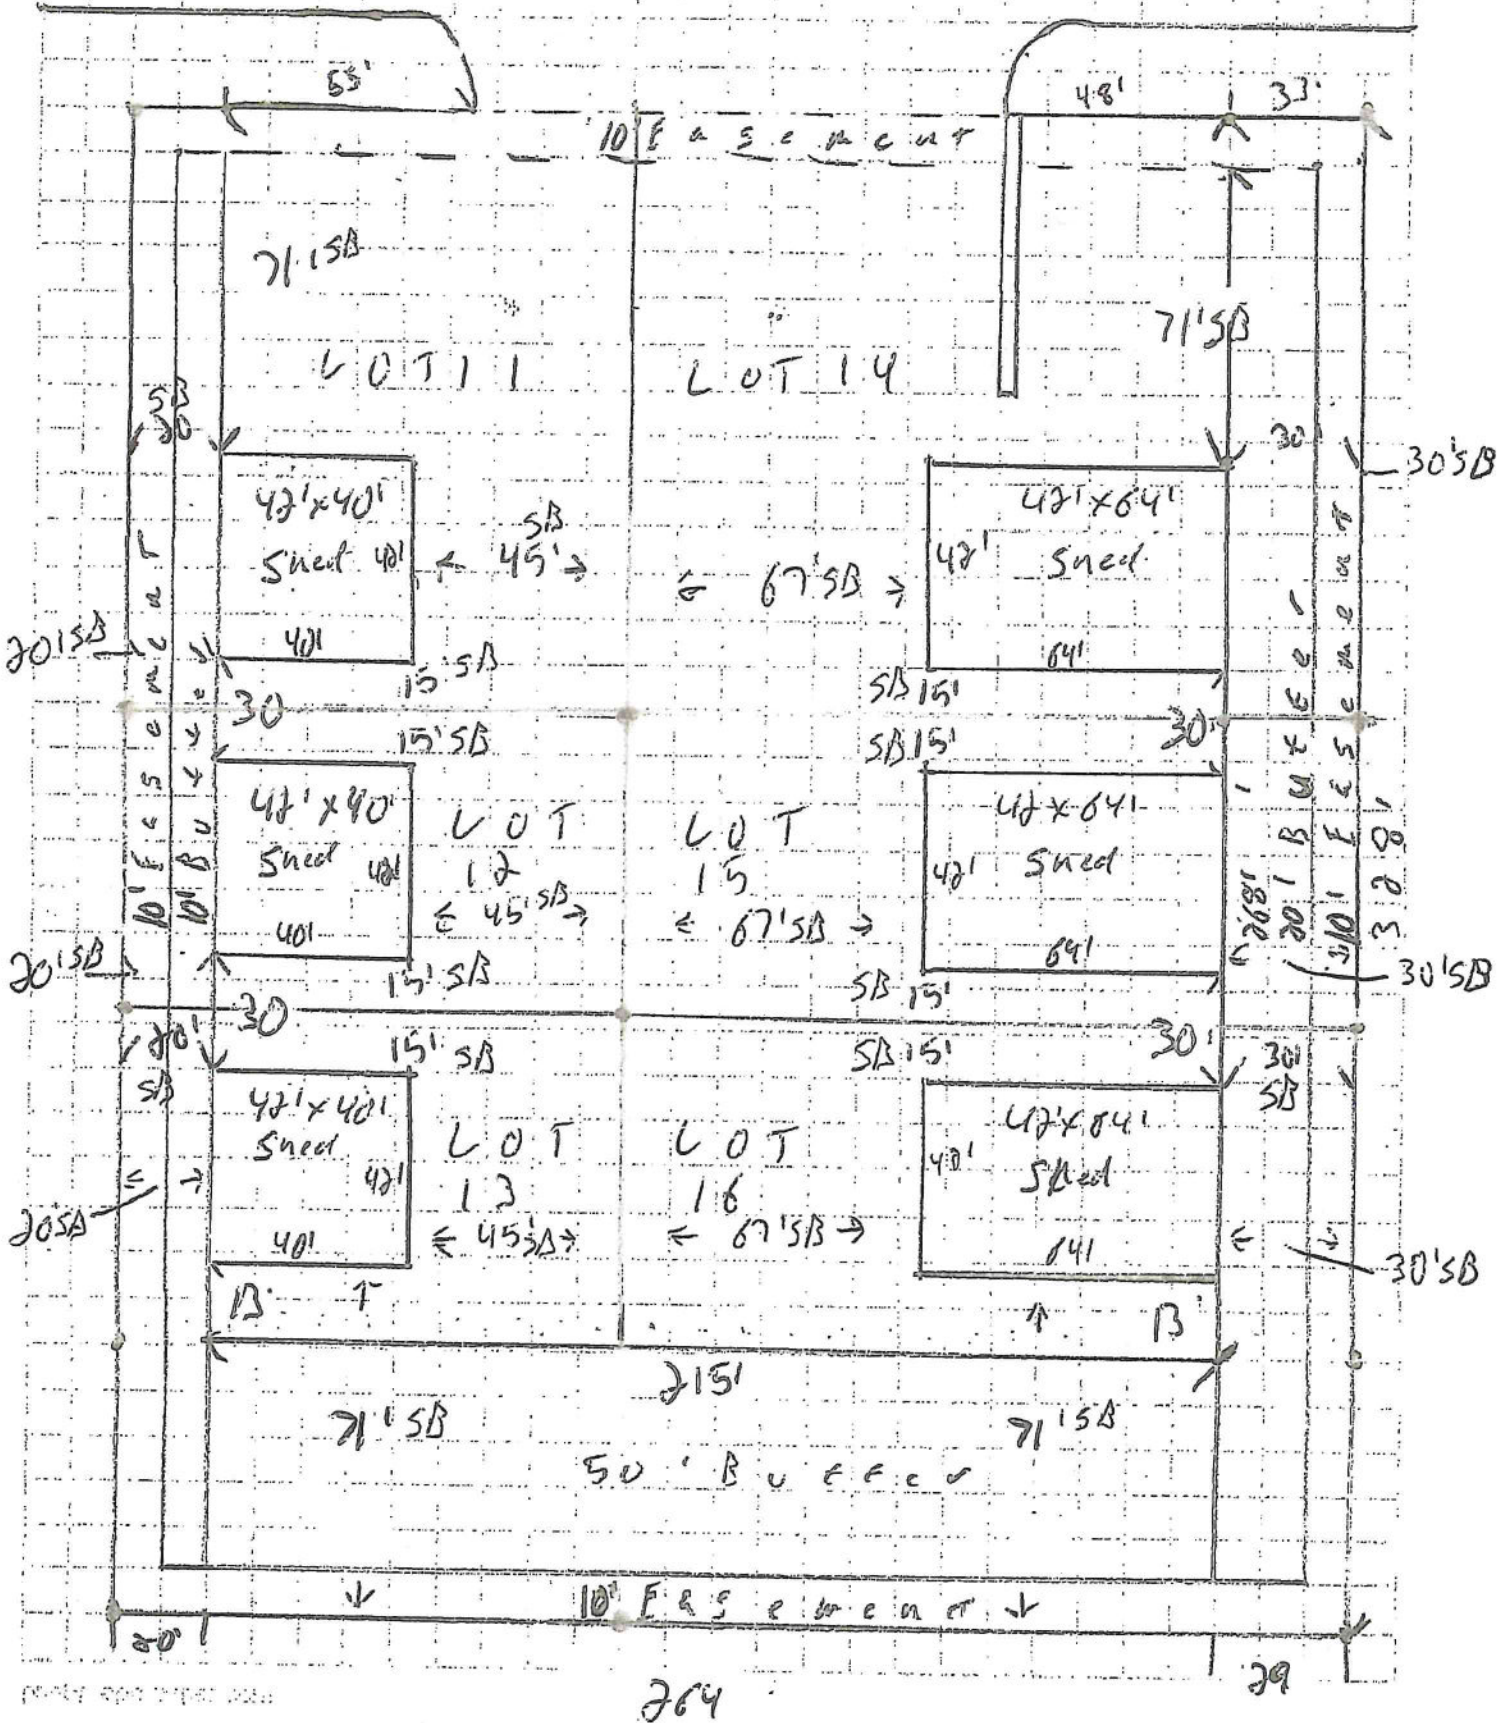 55'
48' 33'
10 Easement
71' SB
71' SB
LOT 11 LOT 14
SB
20
30'
30'SB
42'x40'
Shed 42'
40'
SB
45'
67'SB
42'x64'
42' Shed
64'
20'SB
15' SB
SB 15'
30
30'
15' SB
SB 15'
42'x40'
Shed 42'
40'
LOT
12
45' SB
LOT
15
67'SB
42x64'
42' Shed
64'
10' Easement
10' Buffer
268'
20' Buffer
10' Easement
328'
20'SB
15' SB
SB 15'
30'SB
30
30'
20'
SB
15' SB
SB 15'
30'
SB
42'x40'
Shed
42'
40'
LOT
13
45'SB
LOT
16
67'SB
42'x64'
Shed
64'
20SB
30'SB
215'
71'SB
71'SB
50' Buffer
10' Easement
20'
29
264